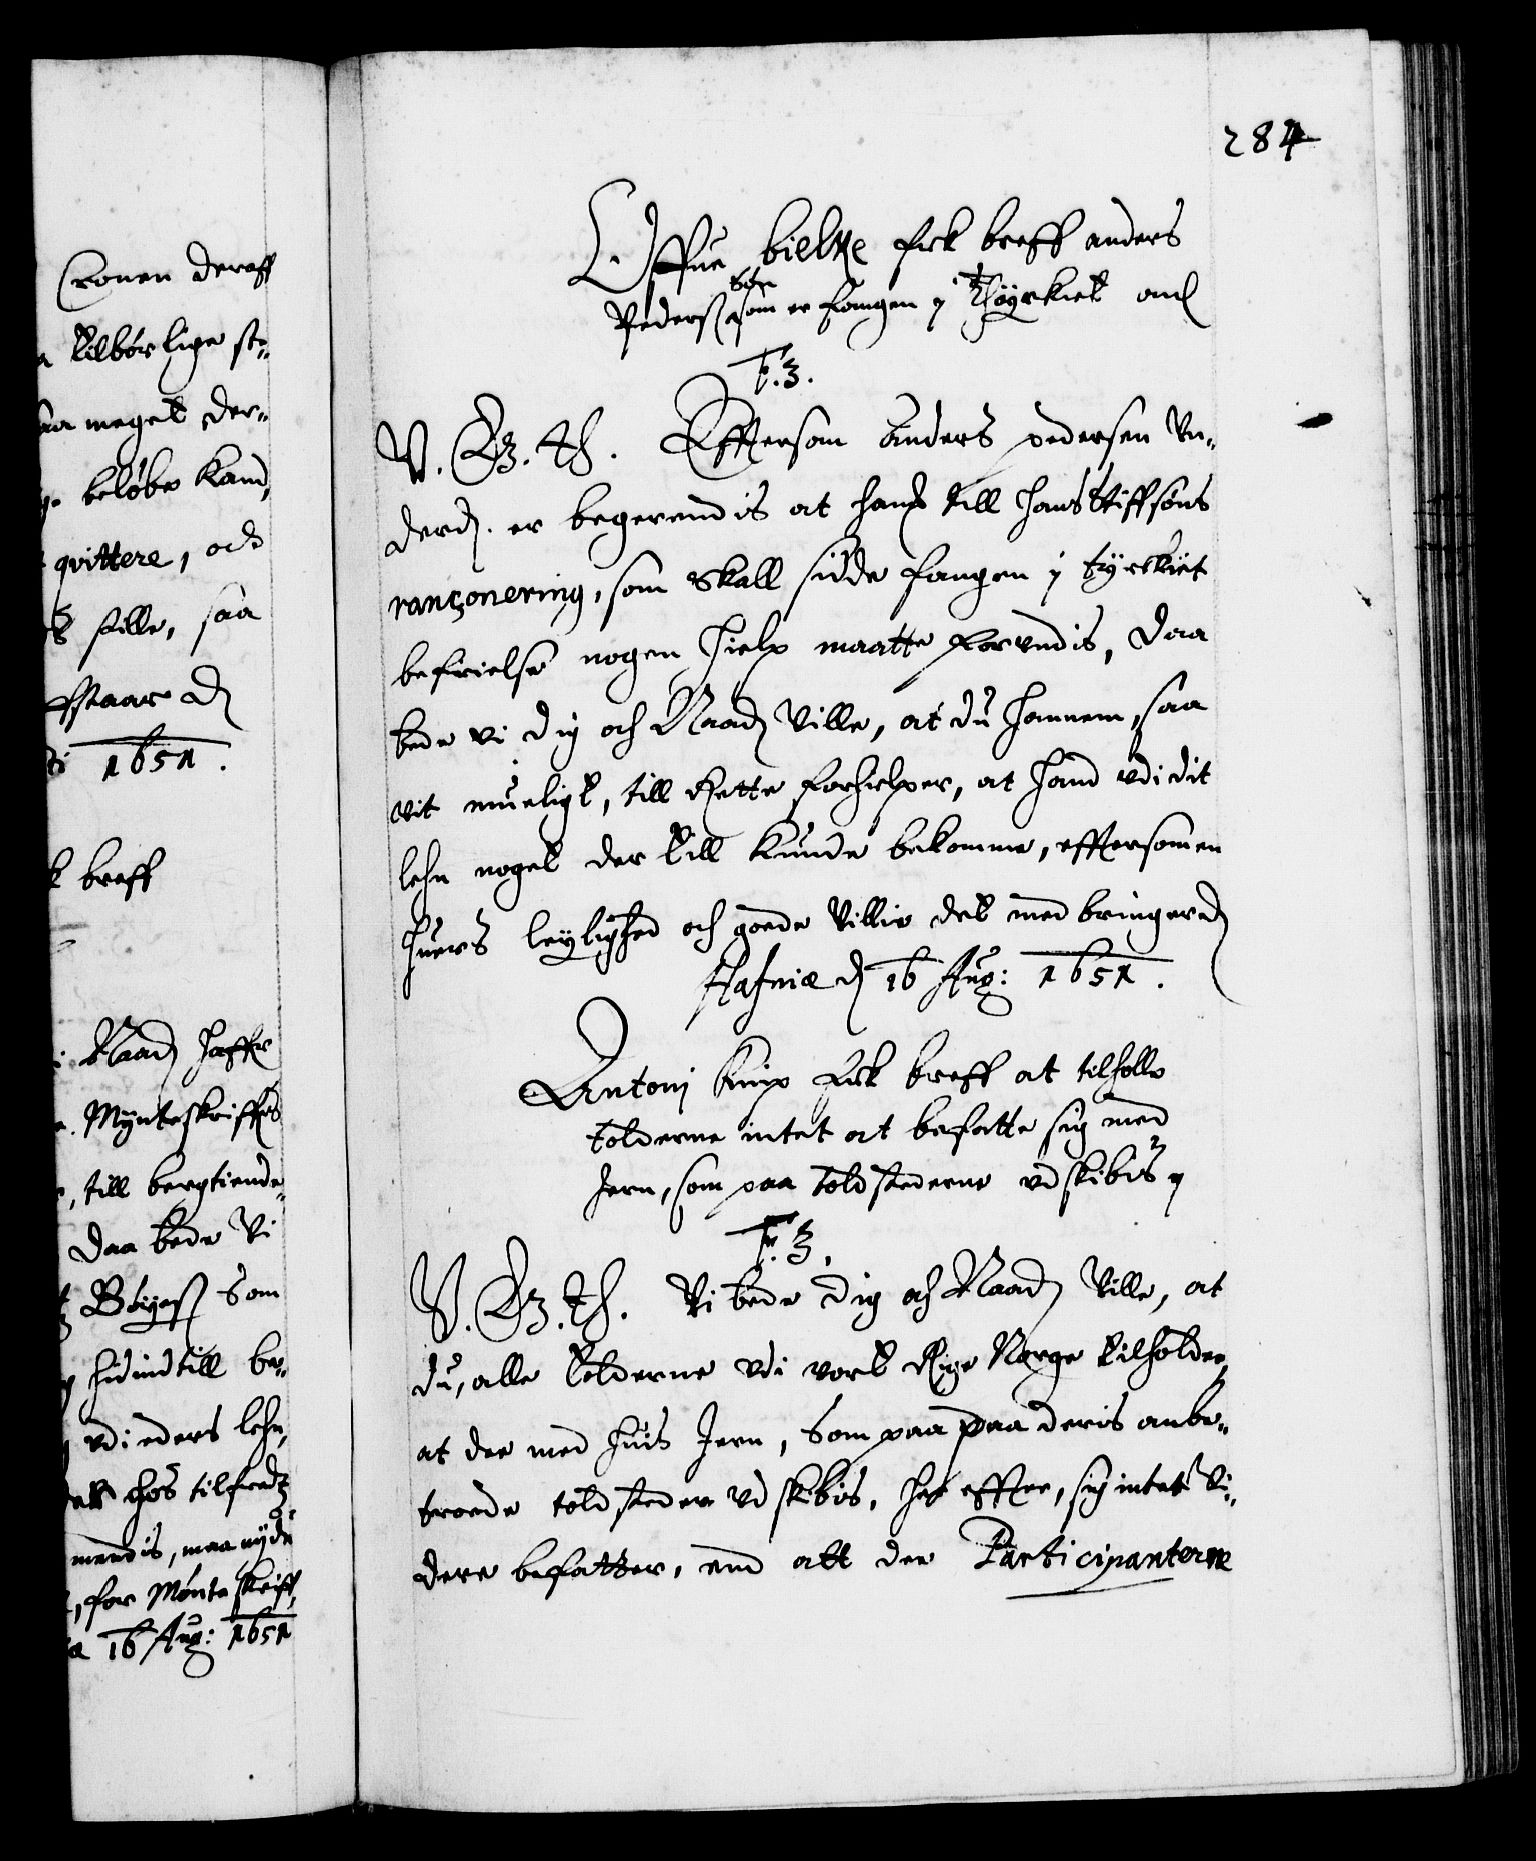 Cronen deraff
tilbørlige ste-
saa meget der-
beløbe kand,
qvittere, och
stille, saa
ffstaar D
1651.
breff
Naadj haffr
Mynteskriffrs
, till bergtiende,
Daa bede Vi
Böigesß som
hid indtill be-
vdi eders lehn,
chos tilfredtz
mendis, maa nyde
, for Mönte skriff,
16 Aug: 1651
284
Offue bielke fick breff anders
Pederß søn som er fangen y Thyrkiet ond
F. 3.
V. G. Th. Efftersom Anders pedersen Vn-
derd. er begerendis at hans till hans Stiffsøns
rançonering, som skall sidde fangen i tyrckiet
befrielse nogen hielp maatte forundis, Daa
bede vi dig och Naadj ville, at du hannem, saa
vit mueligt, till rette forhielper, at hand vdi dit
lehn noget der till kunde bekomme, efftersom en
huers leylighed och goede villie det med bringer D
Hafniæ dj 16 Aug: 1651.
Antoni Knip fick breff at tilholle
tolderne intet at befatte sig med
Jern, som paa toldstederne vdskibis y
F. 3.
V. G. Th. Vi bede dig och Naadj ville, at
du, alle tolderne vdi vort Rige Norge tilholder,
at de med huis Jern, som paa paa deris anbe-
troede toldsteder vdskibis, her effter, sig intet vi-
dere befatter, end att de Participanterne